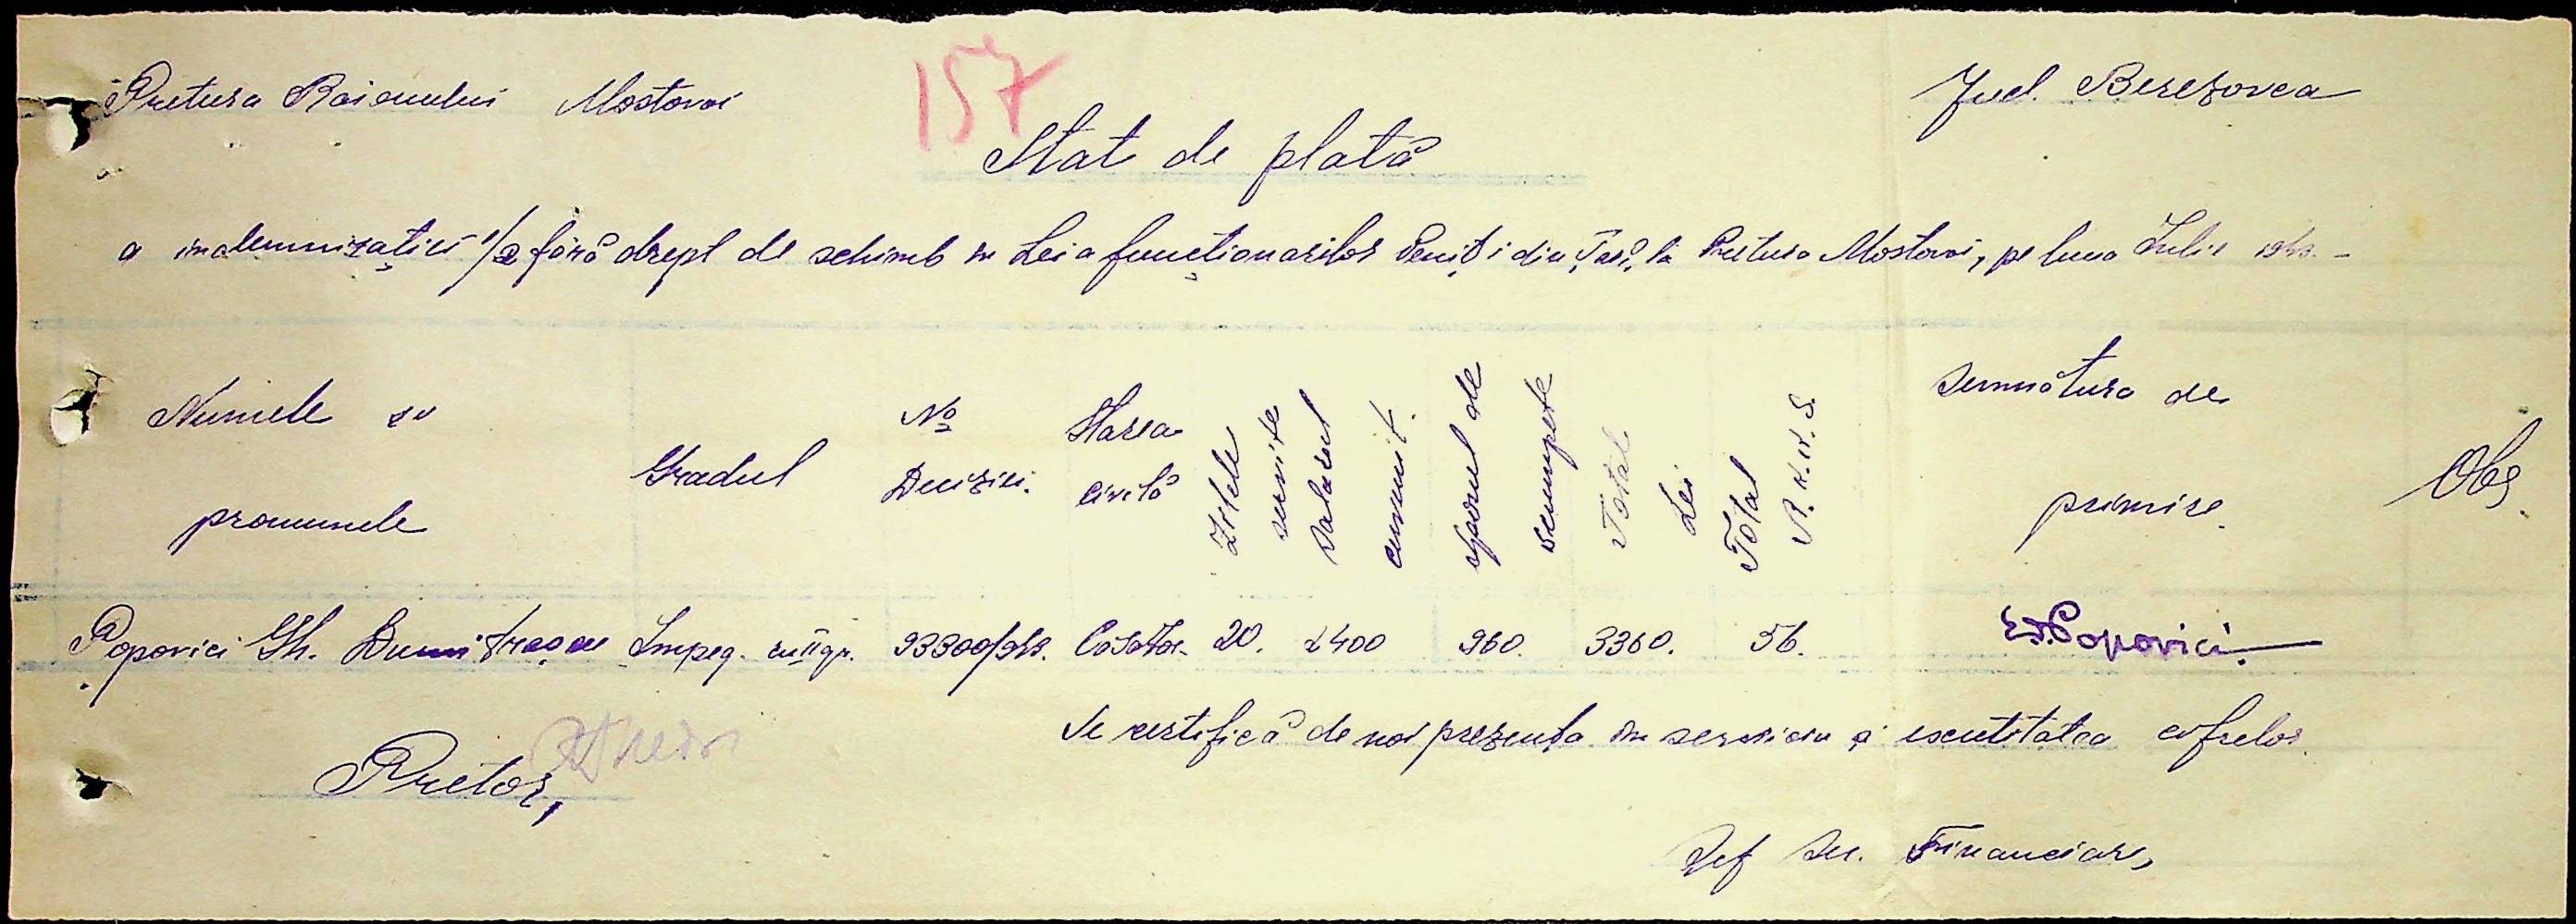 Pretura Raionului Mostovoi
Jud. Berezovca
157
Stat de plată
a indemnizației 1/2 fără drept de schimb în Lei a funcționarilor veniți din Țară, la Pretura Mostovoi, pe luna Iulie 1943.-
Numele și pronumele
Gradul
No Deciziei.
Starea civilă
Zilele servite
Salarul cuvenit.
Sporul de scumpete
Total Lei
Total R.K.K.S.
Semnătura de primire
Obs.
Popovici Gh. Dumitrașcu Impeg. cu II gr. 93300/943. Căsător. 20. 2400 960. 3360. 56. Popovici
Se certifică de noi prezența în serviciu și exactitatea cifrelor.
Pretor,
Șef Ser. Financiar,